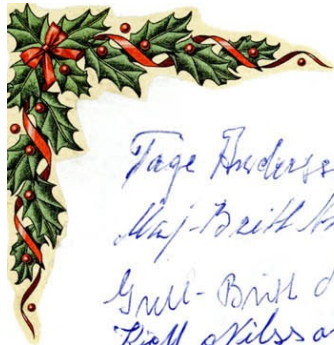 Tage Anderss
Maj-Britt
Gull-Britt
Kjell Nilsso